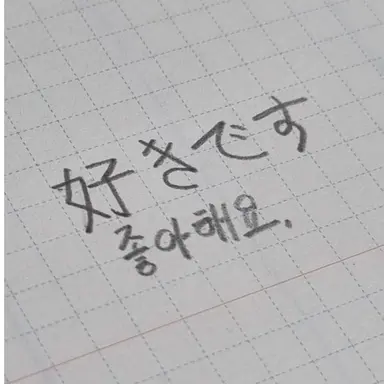 好きです
좋아해요.